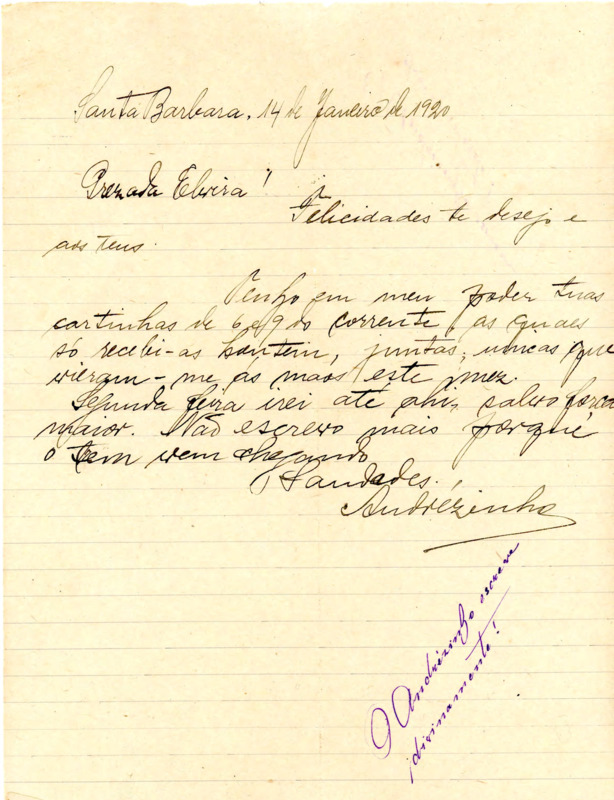 Santa Barbara, 14 de Janeiro de 1920
Prezada Elvira!
Felicidades te desejo e
aos teus.
Tenho em meu poder tuas
cartinhas de 6 e 9 do corrente, as quaes
só recebi-as hontem, juntas, unicas que
vieram-me as maos este mez.
Segunda feira irei até ahi, salvo força
maior. Não escrevo mais porque
o trem vem chegando
Saudades!
Andrézinho
O Andrézinho escreve
divinamente!